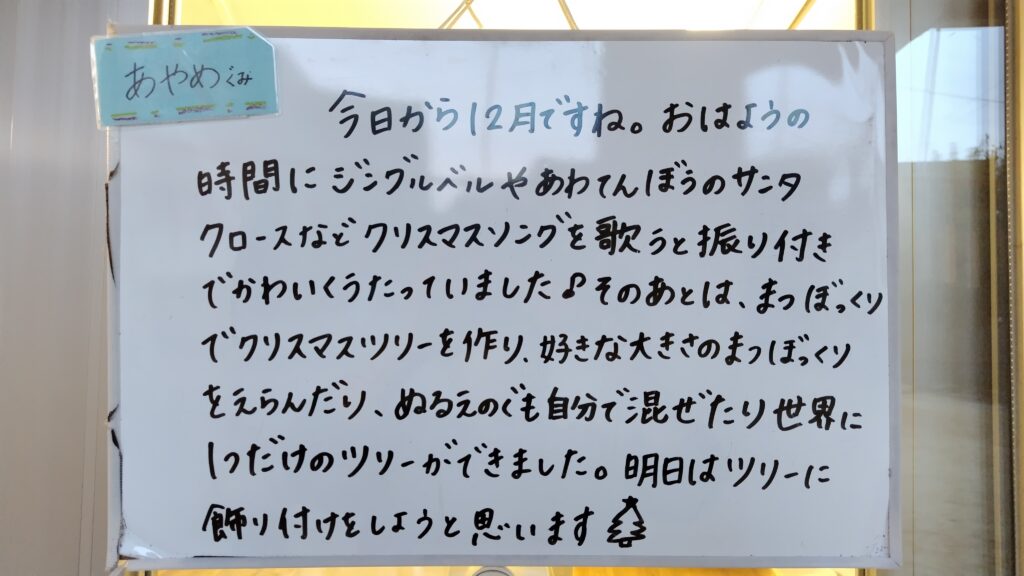 あやめぐみ
今日から12月ですね。おはようの
時間にジングルベルやあわてんぼうのサンタ
クロースなどクリスマスソングを歌うと振り付き
でかわいくうたっていました♪そのあとは、まつぼっくり
でクリスマスツリーを作り、好きな大きさのまつぼっくり
をえらんだり、ぬるえのぐも自分で混ぜたり世界に
1つだけのツリーができました。明日はツリーに
飾り付けをしようと思います